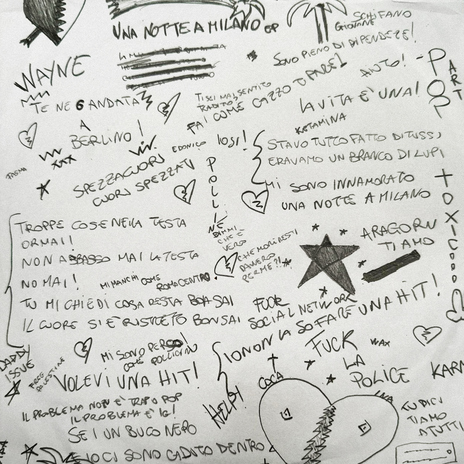 UNA NOTTE A MILANO EP
GIOVANE
SCHIFANO
WAYNE
SONO PIENO DI DIPENDENZE!
TE NE 6 ANDATA
A
BERLINO!
TI SEI MAI SENTITO
TRADITO?
FAI COME CAZZO TI PARE!
AIUTO!
POP
ART
LA VITA È UNA!
KETAMINA
EDONICO
IOSI!
XXX
SPEZZACUORI
CUORI SPEZZATI
POLLINE
STAVO TUTTO FATTO DI TUSSI,
ERAVAMO UN BRANCO DI LUPI
MI SONO INNAMORATO
UNA NOTTE A MILANO
TOXICO
DIMMI
CHE È
VERO
TROPPE COSE NELLA TESTA
ORMAI!
NON ABBASSO MAI LA TESTA
NO MAI!
MI MANCHI COME
ROMA CENTRO
TU MI CHIEDI COSA RESTA BONSAI
IL CUORE SI È RISTRETTO BONSAI
CHE MORIRESTI
DAVVERO
PER ME?!
ARAGORN
TI AMO
FUCK
SOCIAL NETWORK
IO NON LA SO FARE UNA HIT!
DADDY
ISSUE
FREE
PALESTINA
MI SONO PERSO
COME POLLICINO
VOLEVI UNA HIT!
FUCK
LA
POLICE
WAX
KARM
COCA
HELP!
IL PROBLEMA NON È TRAP O POP
IL PROBLEMA È IO!
SEI UN BUCO NERO
IO CI SONO CADUTO DENTRO
LUDICI
TIAMO
A TUTTI